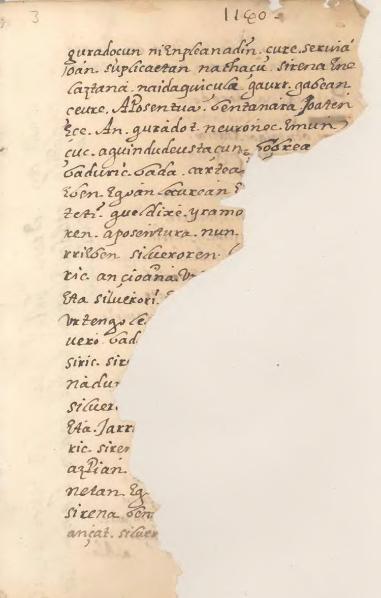 3 1190.
guradocun niEnpleanadin. cure. serviçiã
joan. suplicaetan nabhaçu. sirena Ene
laztana. naidaguicula gaurr. gabean
ceure. APosentua. bentanara Joaten
Ece. An. guradot. neuronec. Emun
çuc. aguindudeustaçun,
baduric. bada. cartea
Eben Egoan
teti. gueldixe. yramo
ren. aposentura. nun
rrilben silveroren.
ric ançioana.
Eta silverori.
urtengo
uero. bad
siric. sir
nadu
silver
Eta. Jarr
ric. siren
azPian
netan. Eg
sirena ben
ançat. silver